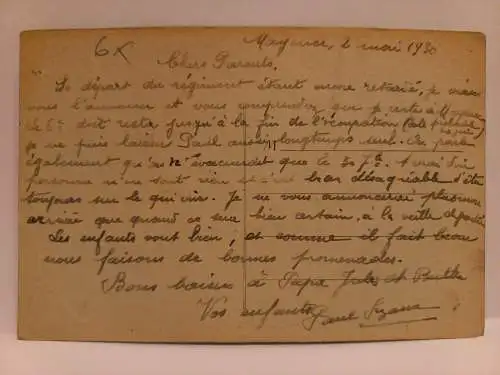 6x
Mayence, 2 mai 1930
Chers Parents.
Le départ du régiment étant encore retardé, je viens
vous l'annoncer et vous comprendrez que je reste à Mayence
le 6e doit rester jusqu'à la fin de l'occupation
je ne puis laisser Paul aussi longtemps seul. On parle
également qu'on n'évacuerait que le 30 7bre. A vrai dire
personne n'en sait rien et c'est bien désagréable d'être
toujours sur le qui vive. Je ne vous annoncerai plus mon
arrivée que quand ce sera bien certain, à la veille
Les enfants vont bien, et comme il fait beau
nous faisons de bonnes promenades.
Bons baisers à Papa Jules et
Vos enfants Paul Suzanne